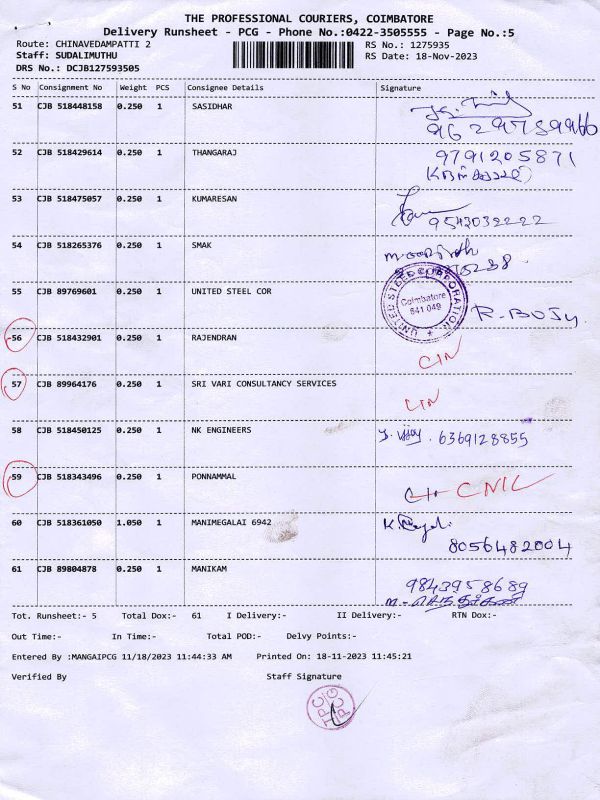 THE PROFESSIONAL COURIERS, COIMBATORE
Delivery Runsheet - PCG - Phone No.:0422-3505555 - Page No.:5
Route: CHINAVEDAMPATTI 2 RS No.: 1275935
Staff: SUDALIMUTHU RS Date: 18-Nov-2023
DRS No.: DCJB127593505
S No Consignment No Weight PCS Consignee Details Signature
51 CJB 518448158 0.250 1 SASIDHAR
9629759966
52 CJB 518429614 0.250 1 THANGARAJ 9791205871
53 CJB 518475057 0.250 1 KUMARESAN
9543032222
54 CJB 518265376 0.250 1 SMAK
55 CJB 89769601 0.250 1 UNITED STEEL COR UNITED STEEL CORPORATION Coimbatore 641 049 R. BOJU
56 CJB 518432901 0.250 1 RAJENDRAN
CIN
57 CJB 89964176 0.250 1 SRI VARI CONSULTANCY SERVICES
CIN
58 CJB 518450125 0.250 1 NK ENGINEERS 6369128855
59 CJB 518343496 0.250 1 PONNAMMAL
60 CJB 518361050 1.050 1 MANIMEGALAI 6942
8056482004
61 CJB 89804878 0.250 1 MANIKAM
9843958689
Tot. Runsheet:- 5 Total Dox:- 61 I Delivery:- II Delivery:- RTN Dox:-
Out Time:- In Time:- Total POD:- Delvy Points:-
Entered By :MANGAIPCG 11/18/2023 11:44:33 AM Printed On: 18-11-2023 11:45:21
Verified By Staff Signature
TPC PCG